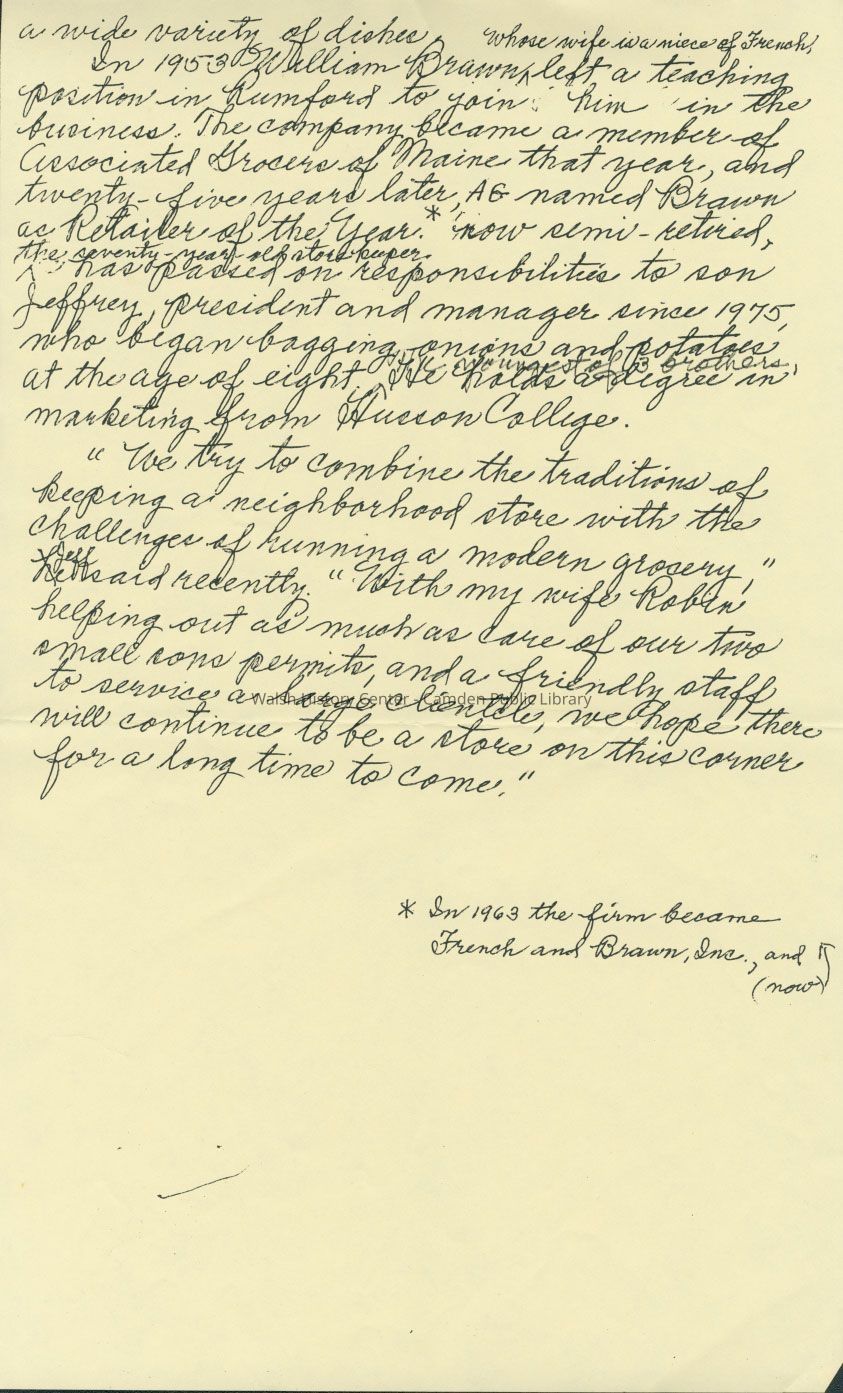 a wide variety of dishes.
whose wife is a niece of French,
In 1953 William Brawn, left a teaching
position in Rumford to join him in the
business. The company became a member of
Associated Grocers of Maine that year, and
twenty-five years later, AG named Brawn
as Retailer of the Year.* now semi-retired,
the seventy-year-old storekeeper
has passed on responsibilities to son
Jeffrey, president and manager since 1975,
who began bagging onions and potatoes
youngest of 3 brothers,
at the age of eight. He holds a degree in
marketing from Husson College.
" We try to combine the traditions of
keeping a neighborhood store with the
challenges of running a modern grocery,"
Jeff
he said recently. "With my wife Robin
helping out as much as care of our two
small sons permits, and a friendly staff
to service a large clientele, we hope there
Walsh History Center - Camden Public Library
will continue to be a store on this corner
for a long time to come."
* In 1963 the firm became
French and Brawn, Inc., and
(now)